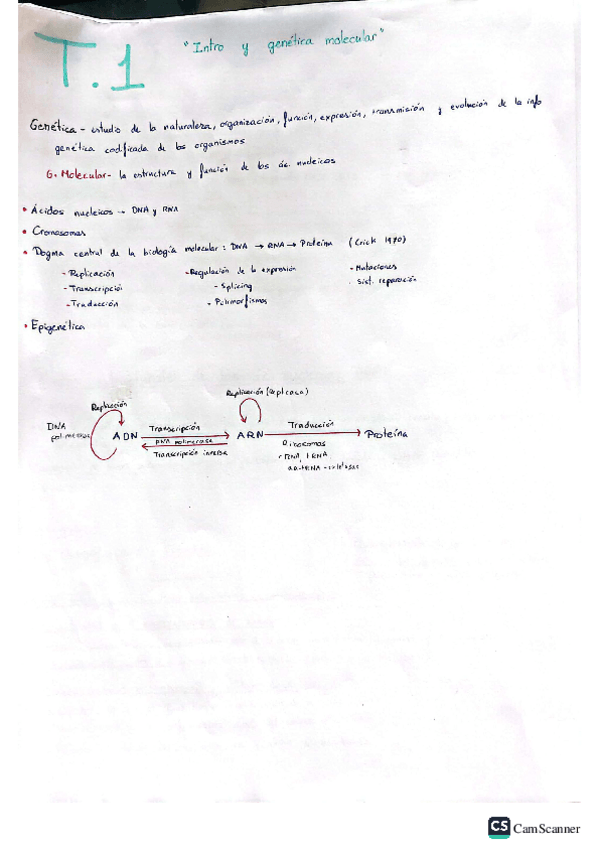 T.1 "Intro y genética molecular"
Genética - estudio de la naturaleza, organización, función, expresión, transmisión y evolución de la info
genética codificada de los organismos
G. Molecular - la estructura y función de los ác. nucleicos
• Ácidos nucleicos → DNA y RNA
• Cromosomas
• Dogma central de la biología molecular: DNA → RNA → Proteína (Crick 1970)
- Replicación - Regulación de la expresión - Mutaciones
- Transcripció - Splicing . Sist. reparación
- Traducción - Polimorfismos
• Epigenética
Replicación (Replicasa)
Replicación
DNA polimerasa
ADN
Transcripción
RNA polimerasa
Transcripción inversa
ARN
Traducción
Ribosomas
rRNA, tRNA
Proteína
CS CamScanner